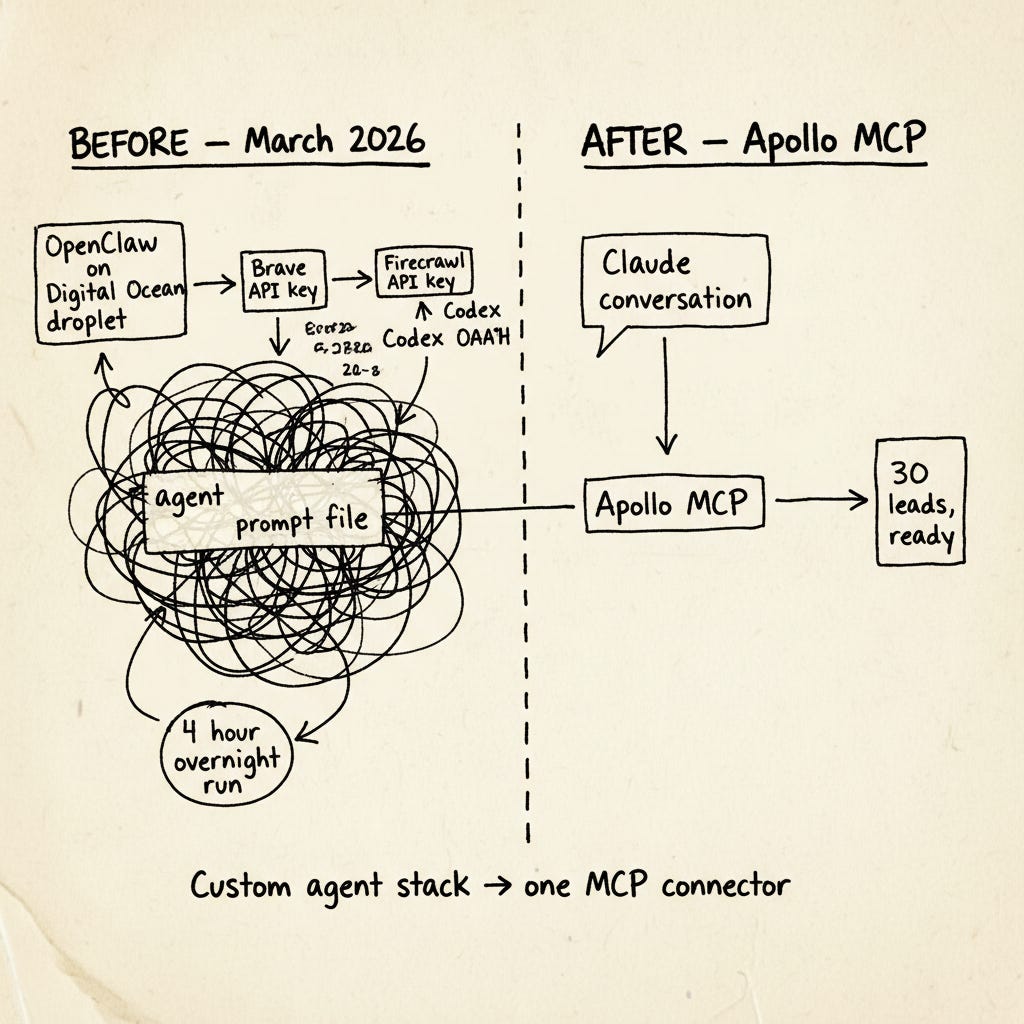 BEFORE — March 2026
OpenClaw
on
Digital Ocean
droplet
Brave
API key
Firecrawl
API key
Codex
Codex
agent
prompt file
4 hour
overnight
run
AFTER — Apollo MCP
Claude
conversation
Apollo MCP
30
leads,
ready
Custom agent stack → one MCP connector